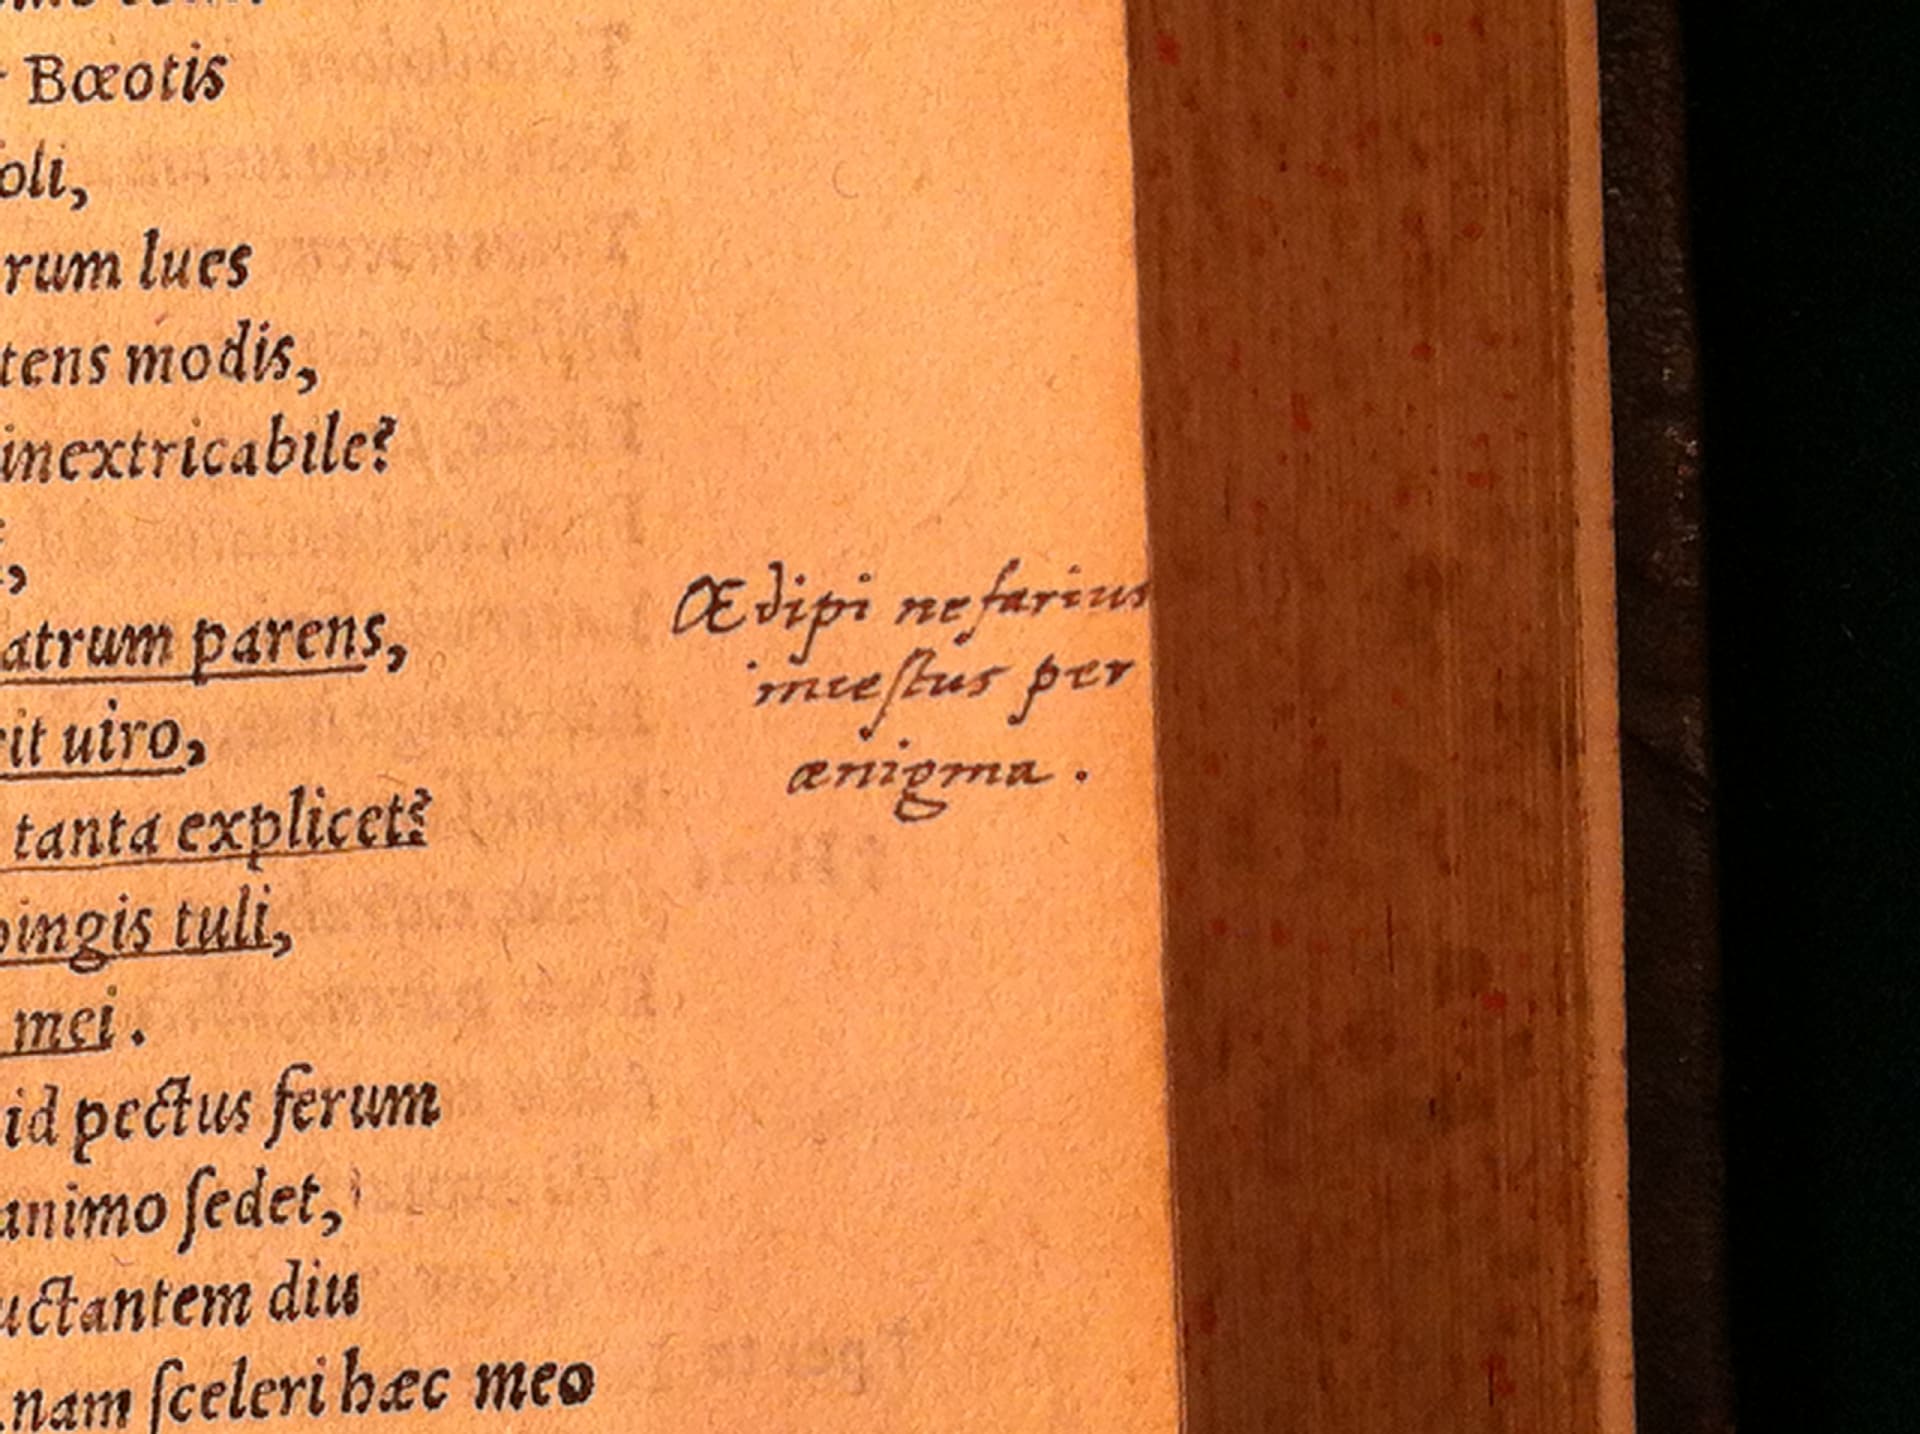 Bœotis
oli,
rum lues
tens modis,
inextricabile?
atrum parens,
it uiro,
tanta explicet?
pingis tuli,
mei.
id pectus ferum
animo ſedet,
uctantem diu
nam ſceleri hæc meo
Œdipi nefarius
inceſtus per
ænigma.